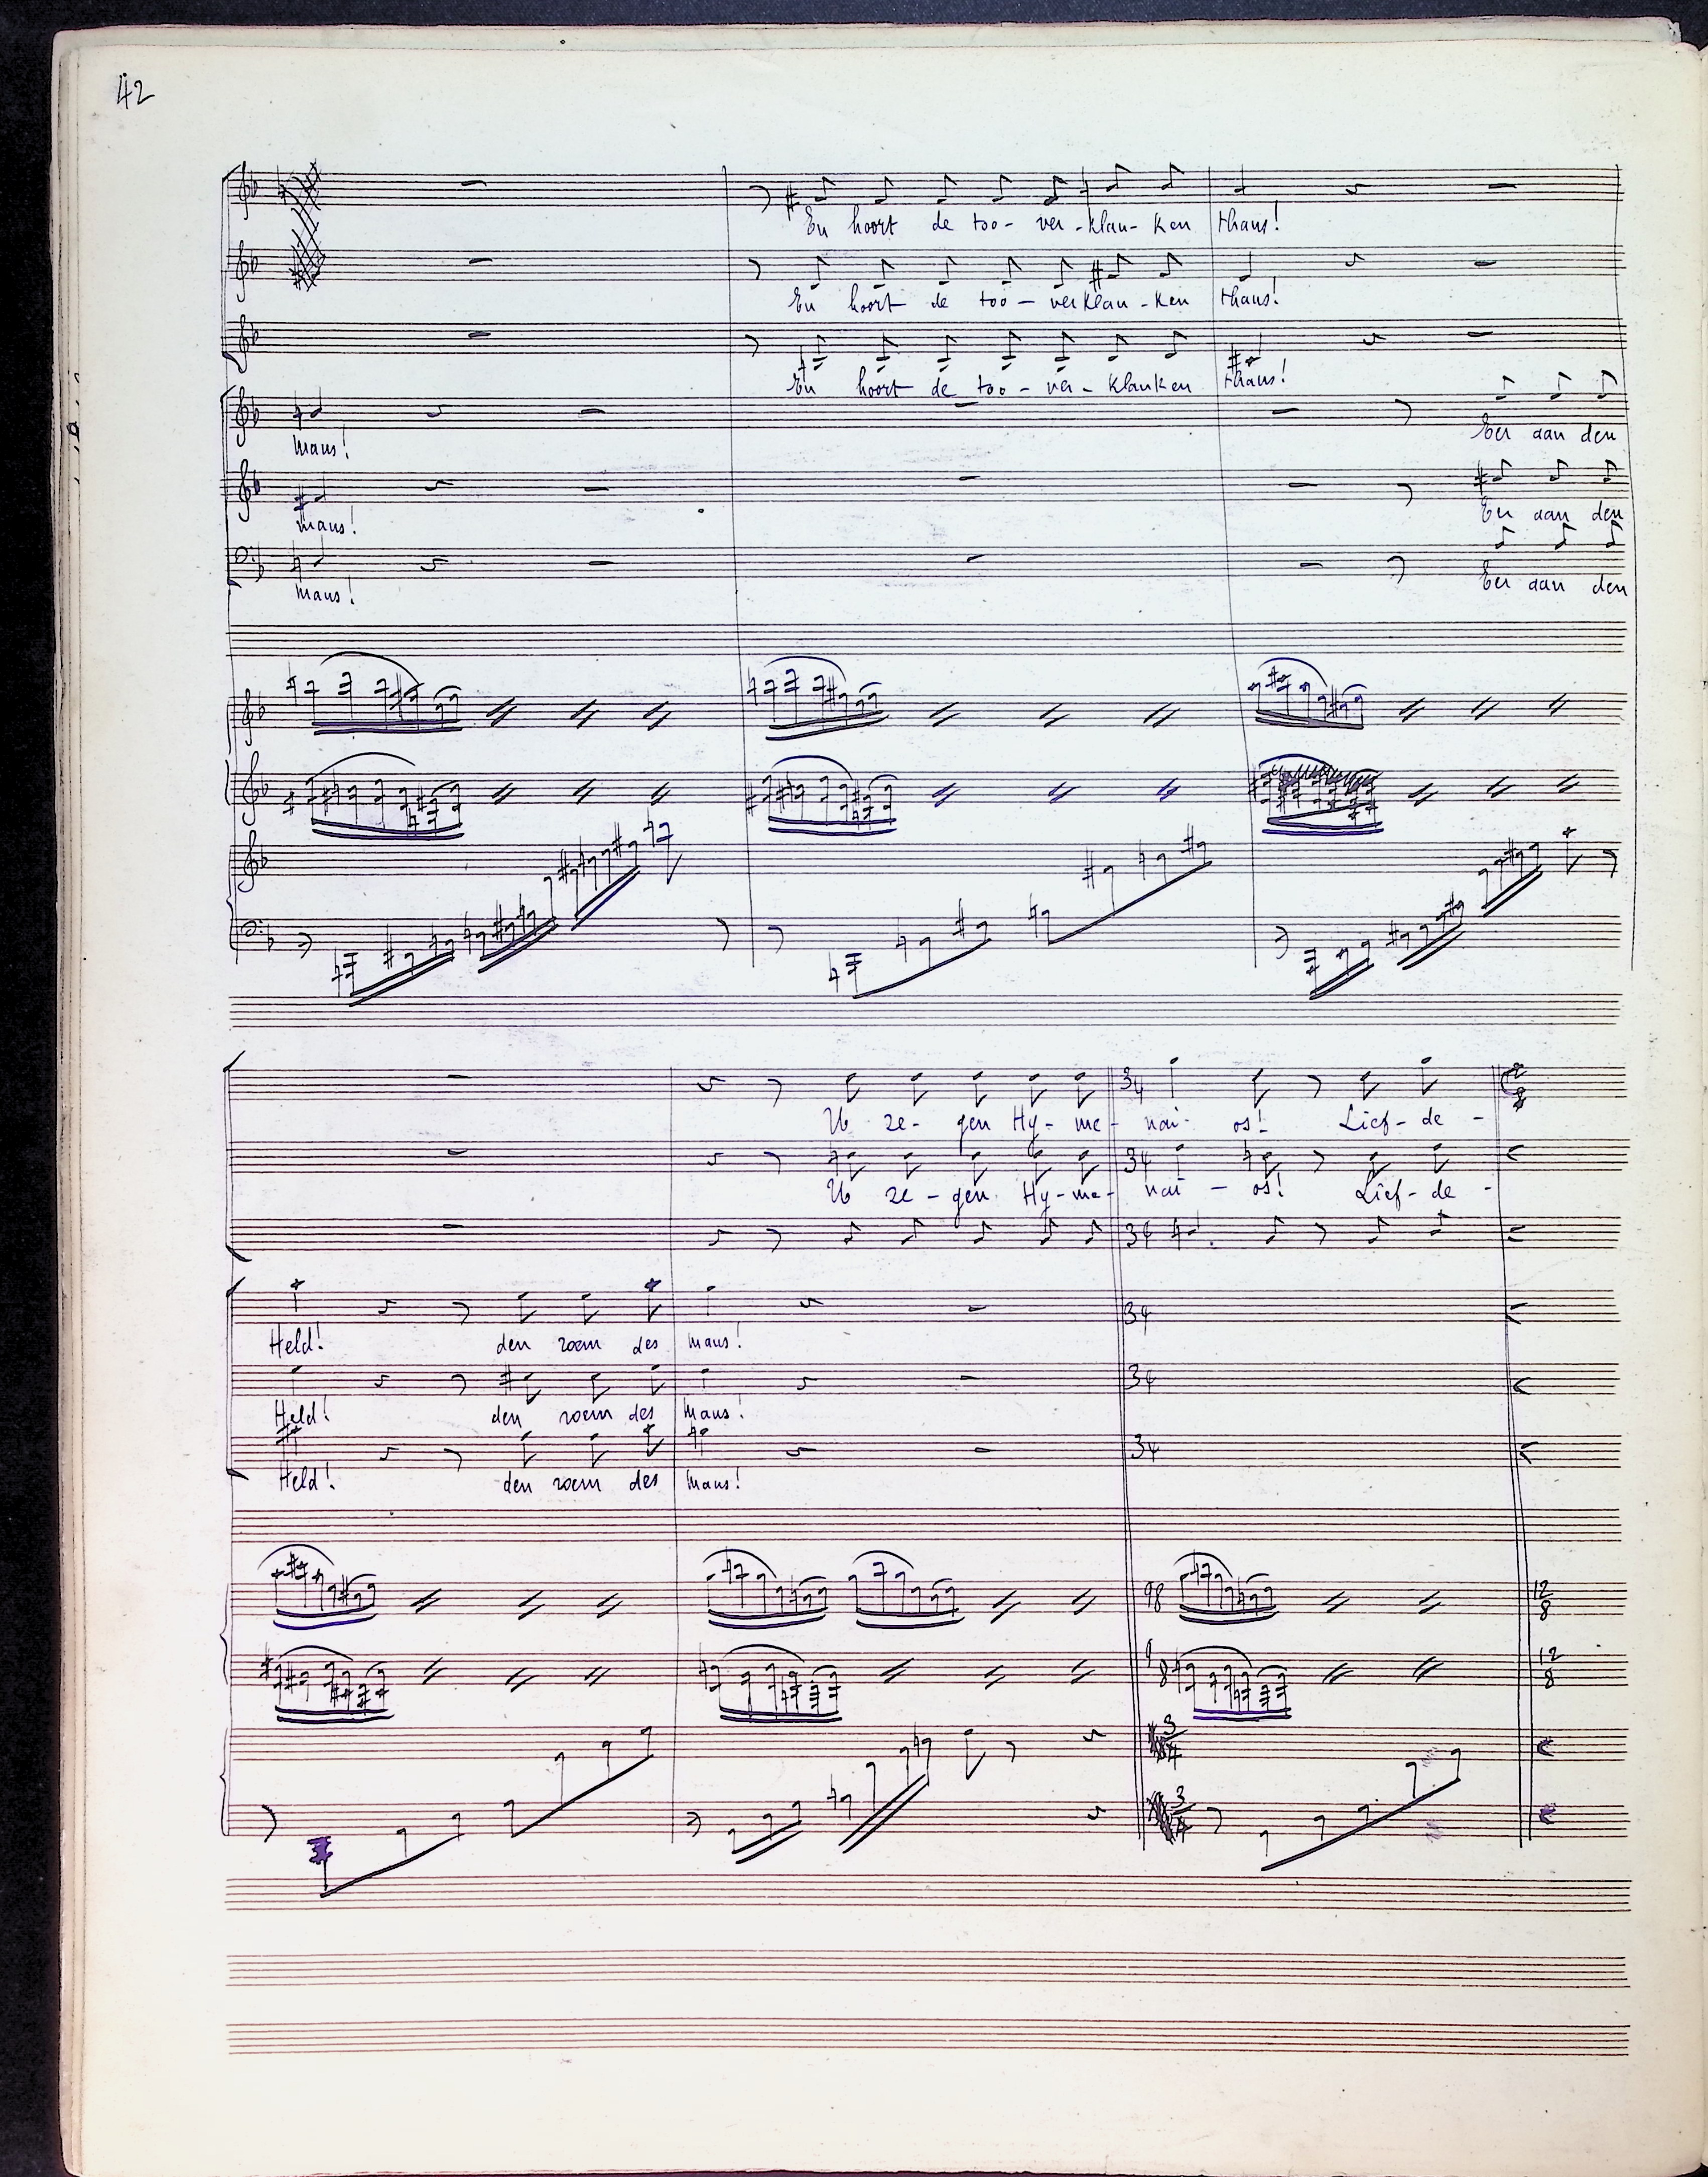 42
En hoort de too- ver-klan-ken thans!
En hoort de too-verklan-ken thans!
En hoort de too-ver-klanken thans!
mans! Eer aan den
mans! Eer aan den
mans! Eer aan den
U ze-gen Hy-me- nai- os! Lief-de-
3 4
U ze-gen Hy-me- nai-os! Lief-de-
34
34
Held! den roem des mans!
34
Held! den roem des mans!
34
Held! den roem des mans!
34
98 12 8
9 8 12 8
3 4
3 4